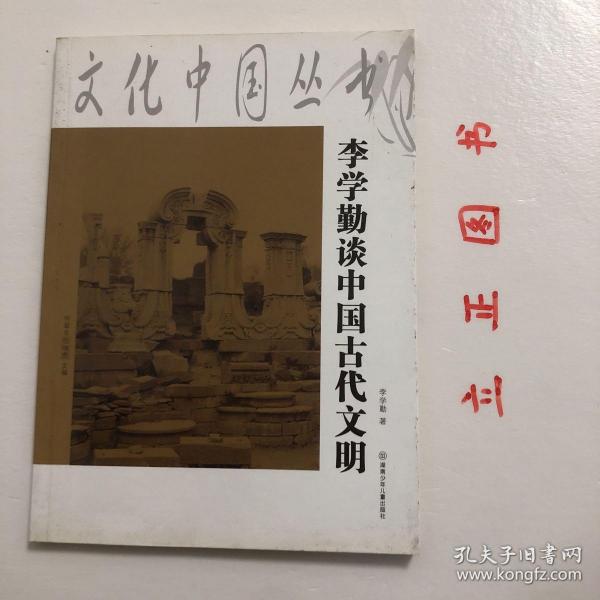 文化中国丛书
李学勤谈中国古代文明
李学勤 著
湖南少年儿童出版社
立正图书
孔夫子旧书网
www.kongfz.com